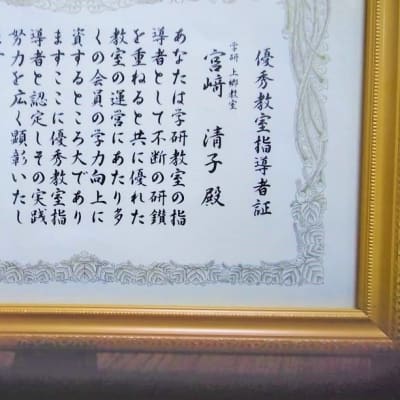 優秀教室指導者証
学研 上郷教室
宮﨑 清子 殿
あなたは学研教室の指
導者として不断の研鑚
を重ねると共に優れた
教室の運営にあたり多
くの会員の学力向上に
資するところ大であり
ますここに優秀教室指
導者と認定しその実践
努力を広く顕彰いたし